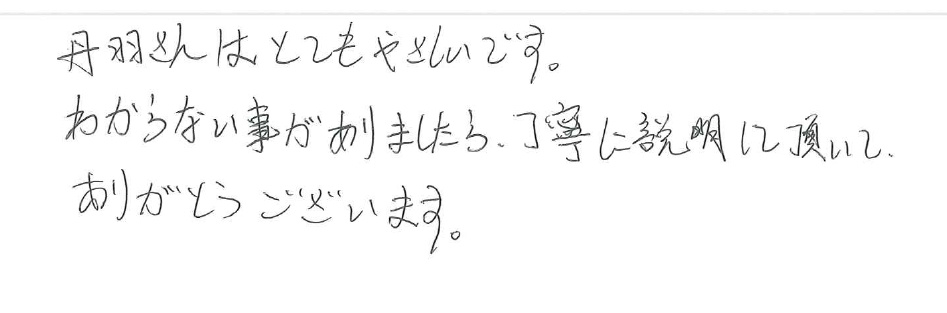 丹羽さんはとてもやさしいです。
わからない事がありましたら、丁寧に説明して頂いて、
ありがとうございます。